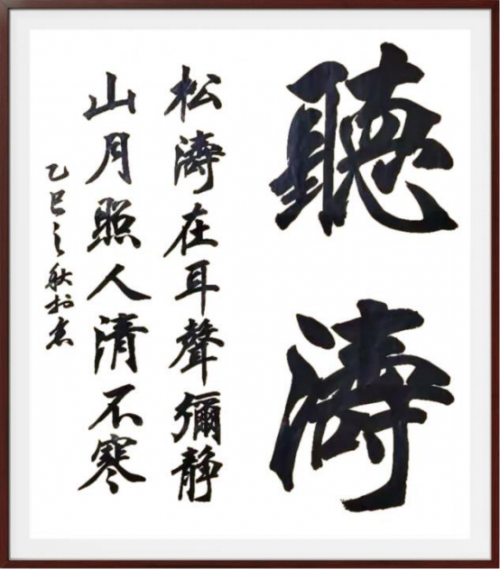 聽濤
松濤在耳聲彌靜
山月照人清不寒
乙巳之秋於京